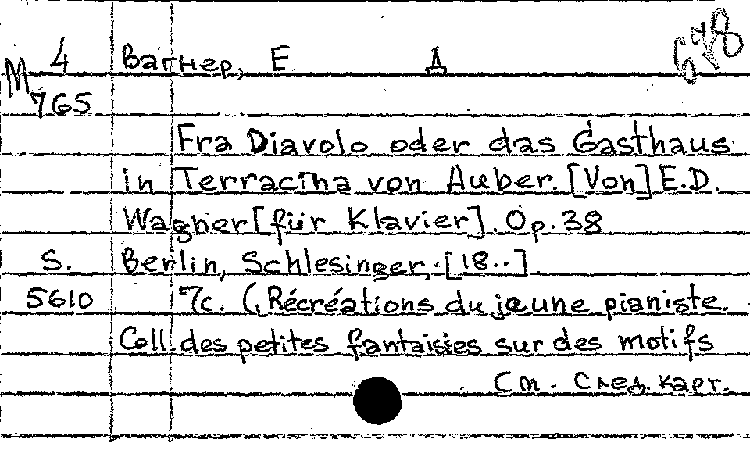 М 4 Вагнер, Е Д 648
765
Fra Diavolo oder das Gasthaus
in Terracina von Auber. [Von] E.D.
Wagner [für Klavier]. Op. 38
S. Berlin, Schlesinger, [18..]
5610 7с. (Récréations du jeune pianiste.
Coll. des petites fantaisies sur des motifs
См. след. карт.